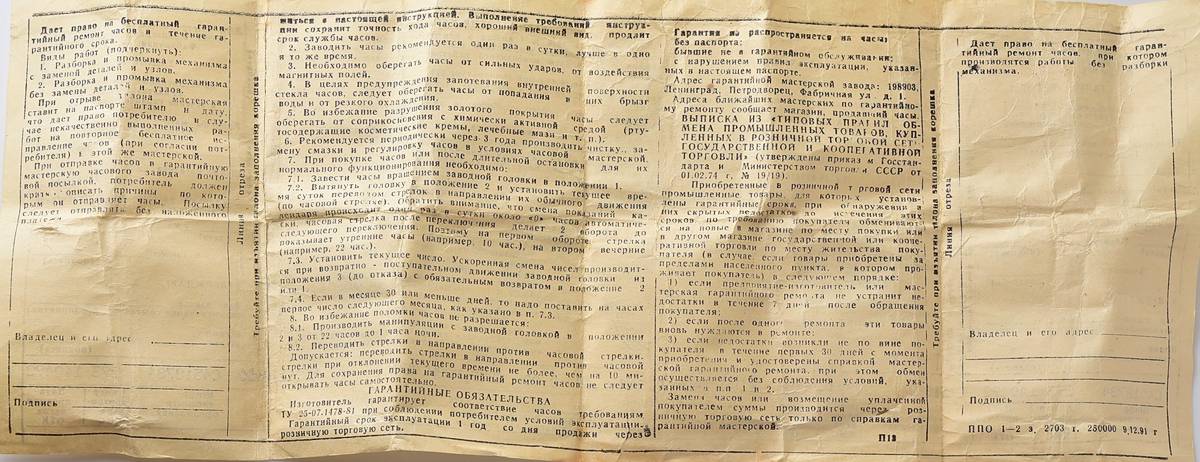 Дает право на бесплатный гаран-
тийный ремонт часов в течение га-
рантийного срока.
Виды работ (подчеркнуть):
1. Разборка и промывка механизма
с заменой деталей и узлов.
2. Разборка и промывка механизма
без замены деталей и узлов.
При отрыве талона мастерская
ставит на паспорте штамп и дату,
что дает право потребителю в слу-
чае некачественно выполненных ра-
бот на повторное бесплатное ис-
правление часов (при согласии пот-
ребителя) в этой же мастерской.
При отправке часов в гарантийную
мастерскую часового завода почто-
вой посылкой, потребитель должен
кратко описать причины, по кото-
рым он отправляет часы. Посылку
следует отправить без наложенного
Владелец и его адрес
Подпись
Линия отреза
Требуйте при изъятии талона заполнения корешка
миться в настоящей инструкцией. Выполнение требований инструк-
ции сохранит точность хода часов, хороший внешний вид, продлит
срок службы часов.
2. Заводить часы рекомендуется один раз в сутки, лучше в одно
и то же время.
3. Необходимо оберегать часы от сильных ударов, от воздействия
магнитных полей.
4. В целях предупреждения запотевания внутренней поверхности
стекла часов, следует оберегать часы от попадания в них брызг
воды и от резкого охлаждения.
5. Во избежание разрушения золотого покрытия часы следует
оберегать от соприкосновения с химически активной средой (рту-
тосодержащие косметические кремы, лечебные мази и т. п.).
6. Рекомендуется периодически через 3 года производить чистку, за-
мену смазки и регулировку часов в условиях часовой мастерской.
7. При покупке часов или после длительной остановки для их
нормального функционирования необходимо:
7.1. Завести часы вращением заводной головки в положении 1.
7.2. Вытянуть головку в положение 2 и установить текущее вре-
мя суток переводом стрелок в направлении их обычного движения
(по часовой стрелке). Обратить внимание, что смена показаний ка-
лендаря происходит один раз в сутки около «0» часов автоматиче-
ски, часовая стрелка после переключения делает 2 оборота до
следующего переключения. Поэтому на первом обороте стрелка
показывает утренние часы (например, 10 час.), на втором вечерние
(например, 22 час.).
7.3. Установить текущее число. Ускоренная смена чисел производит-
ся при возвратно - поступательном движении заводной головки из
положения 3 (до отказа) с обязательным возвратом в положение 2
или 1.
7.4. Если в месяце 30 или меньше дней, то надо поставить на часах
первое число следующего месяца, как указано в п. 7.3.
8. Во избежание поломки часов не разрешается:
8.1. Производить манипуляции с заводной головкой в положении
2 и 3 от 22 часов до 1 часа ночи.
8.2. Переводить стрелки в направлении против часовой стрелки.
Допускается: переводить стрелки в направлении против часовой
стрелки при отклонении текущего времени не более, чем на 10 ми-
нут. Для сохранения права на гарантийный ремонт часов не следует
открывать часы самостоятельно.
ГАРАНТИЙНЫЕ ОБЯЗАТЕЛЬСТВА
Изготовитель гарантирует соответствие часов требованиям
ТУ 25-07.1478-81 при соблюдении потребителем условий эксплуатации.
Гарантийный срок эксплуатации 1 год со дня продажи через
розничную торговую сеть.
Гарантия не распространяется на часы:
без паспорта;
бывшие не в гарантийном обслуживании;
с нарушением правил эксплуатации, указан-
ных в настоящем паспорте.
Адрес гарантийной мастерской завода: 198903,
Ленинград, Петродворец, Фабричная ул. д. 1.
Адреса ближайших мастерских по гарантийно-
му ремонту сообщает магазин, продавший часы.
ВЫПИСКА ИЗ «ТИПОВЫХ ПРАВИЛ ОБ-
МЕНА ПРОМЫШЛЕННЫХ ТОВАРОВ, КУП-
ЛЕННЫХ В РОЗНИЧНОЙ ТОРГОВОЙ СЕТИ
ГОСУДАРСТВЕННОЙ И КООПЕРАТИВНОЙ
ТОРГОВЛИ» (утверждены приказом Госстан-
дарта и Министерством торговли СССР от
01.02.74 г. № 19/19).
Приобретенные в розничной торговой сети
промышленные товары, для которых установ-
лены гарантийные сроки, при обнаружении в
них скрытых недостатков до истечения этих
сроков по требованию покупателя обменивают-
ся на новые в магазине по месту покупки или
в другом магазине государственной или коопе-
ративной торговли по месту жительства поку-
пателя (в случае, если товары приобретены за
пределами населенного пункта, в котором про-
живает покупатель) в следующем порядке:
1) если предприятие-изготовитель или мас-
терская гарантийного ремонта не устранит не-
достатки в течение 7 дней после обращения
покупателя;
2) если после одного ремонта эти товары
вновь нуждаются в ремонте;
3) если недостатки возникли не по вине по-
купателя в течение первых 30 дней с момента
приобретения и удостоверены справкой мастер-
ской гарантийного ремонта, при этом обмен
осуществляется без соблюдения условий, ука-
занных в п.п 1 и 2.
Замена часов или возмещение уплаченной
покупателем суммы производится через роз-
ничную торговую сеть только по справкам га-
рантийной мастерской.
П13
Требуйте при изъятии талона заполнения корешка
Линия отреза
Дает право на бесплатный гаран-
тийный ремонт часов, при котором
производятся работы без разборки
механизма.
Владелец и его адрес
Подпись
ППО 1—2 з. 2703 г. 250000 9.12.91 г